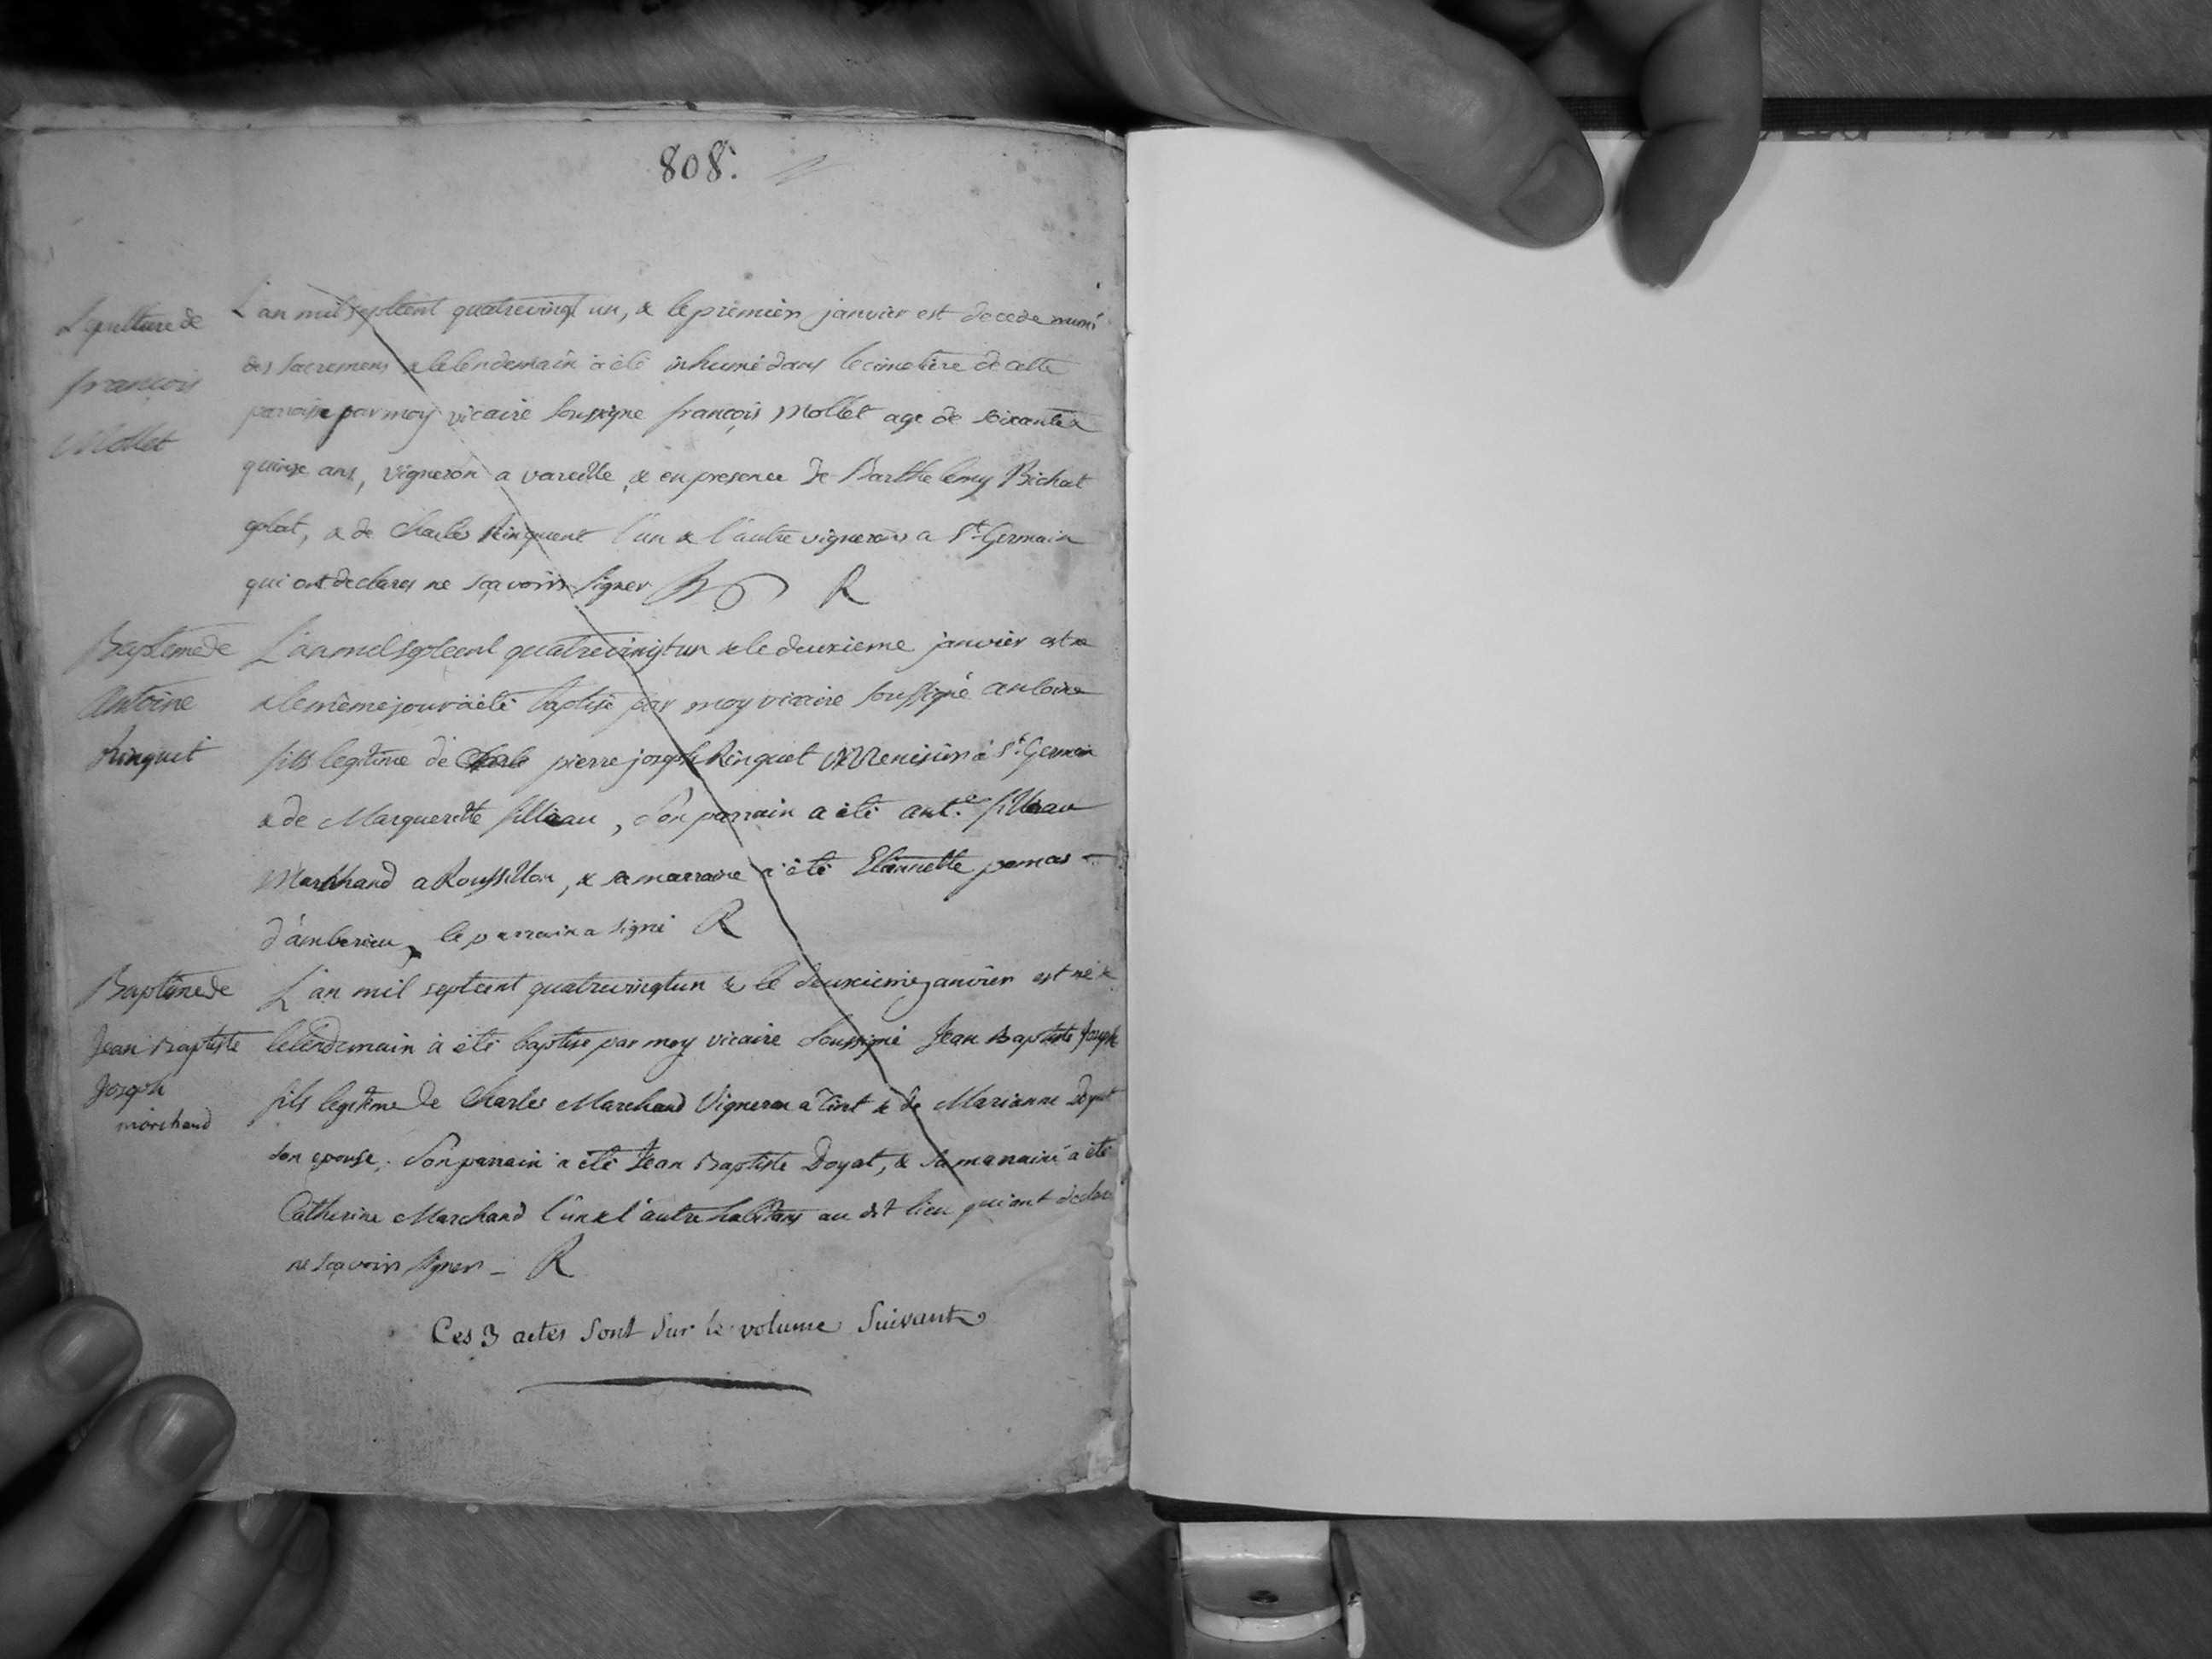 808.
Sepulture de
françois
Mollet
L'an mil septcent quatrevingt un, & le premier janvier est decede muni
des sacremens & le lendemain à été inhumé dans le cimetiere de cette
paroisse par moy vicaire soussigne françois Mollet age de soixante &
quinze ans, vigneron a vareille, & en presence de Barthelemy Bichat
golat, & de Charles Rinquent l'un & l'autre vignerons a St Germain
qui ont declares ne sçavoir signer R
Baptême de
Antoine
Rinquet
L'an mil septcent quatrevingt un & le deuxieme janvier est né
& le même jour à été baptisé par moy vicaire soussigné antoine
fils legitime de pierre joseph Rinquet Menisier à St Germain
& de Margueritte filleau, son parrain a été ant.e filleau
Marchand a Roussillon, & sa marraine a été Etiennette pernas
d'amberieu, le parrain a signé R
Baptême de
Jean Baptiste
Joseph
marchand
L'an mil septcent quatrevingt un & le deuxieme janvier est né &
le lendemain à été baptisé par moy vicaire soussigné Jean Baptiste Joseph
fils legitime de Charles Marchand Vigneron a Tiret & de Marianne Doyat
son epouse. Son parrain a été Jean Baptiste Doyat, & sa marraine a été
Catherine Marchand l'un & l'autre habitans au dit lieu qui ont declaré
ne sçavoir signer _ R
Ces 3 actes sont sur le volume suivant